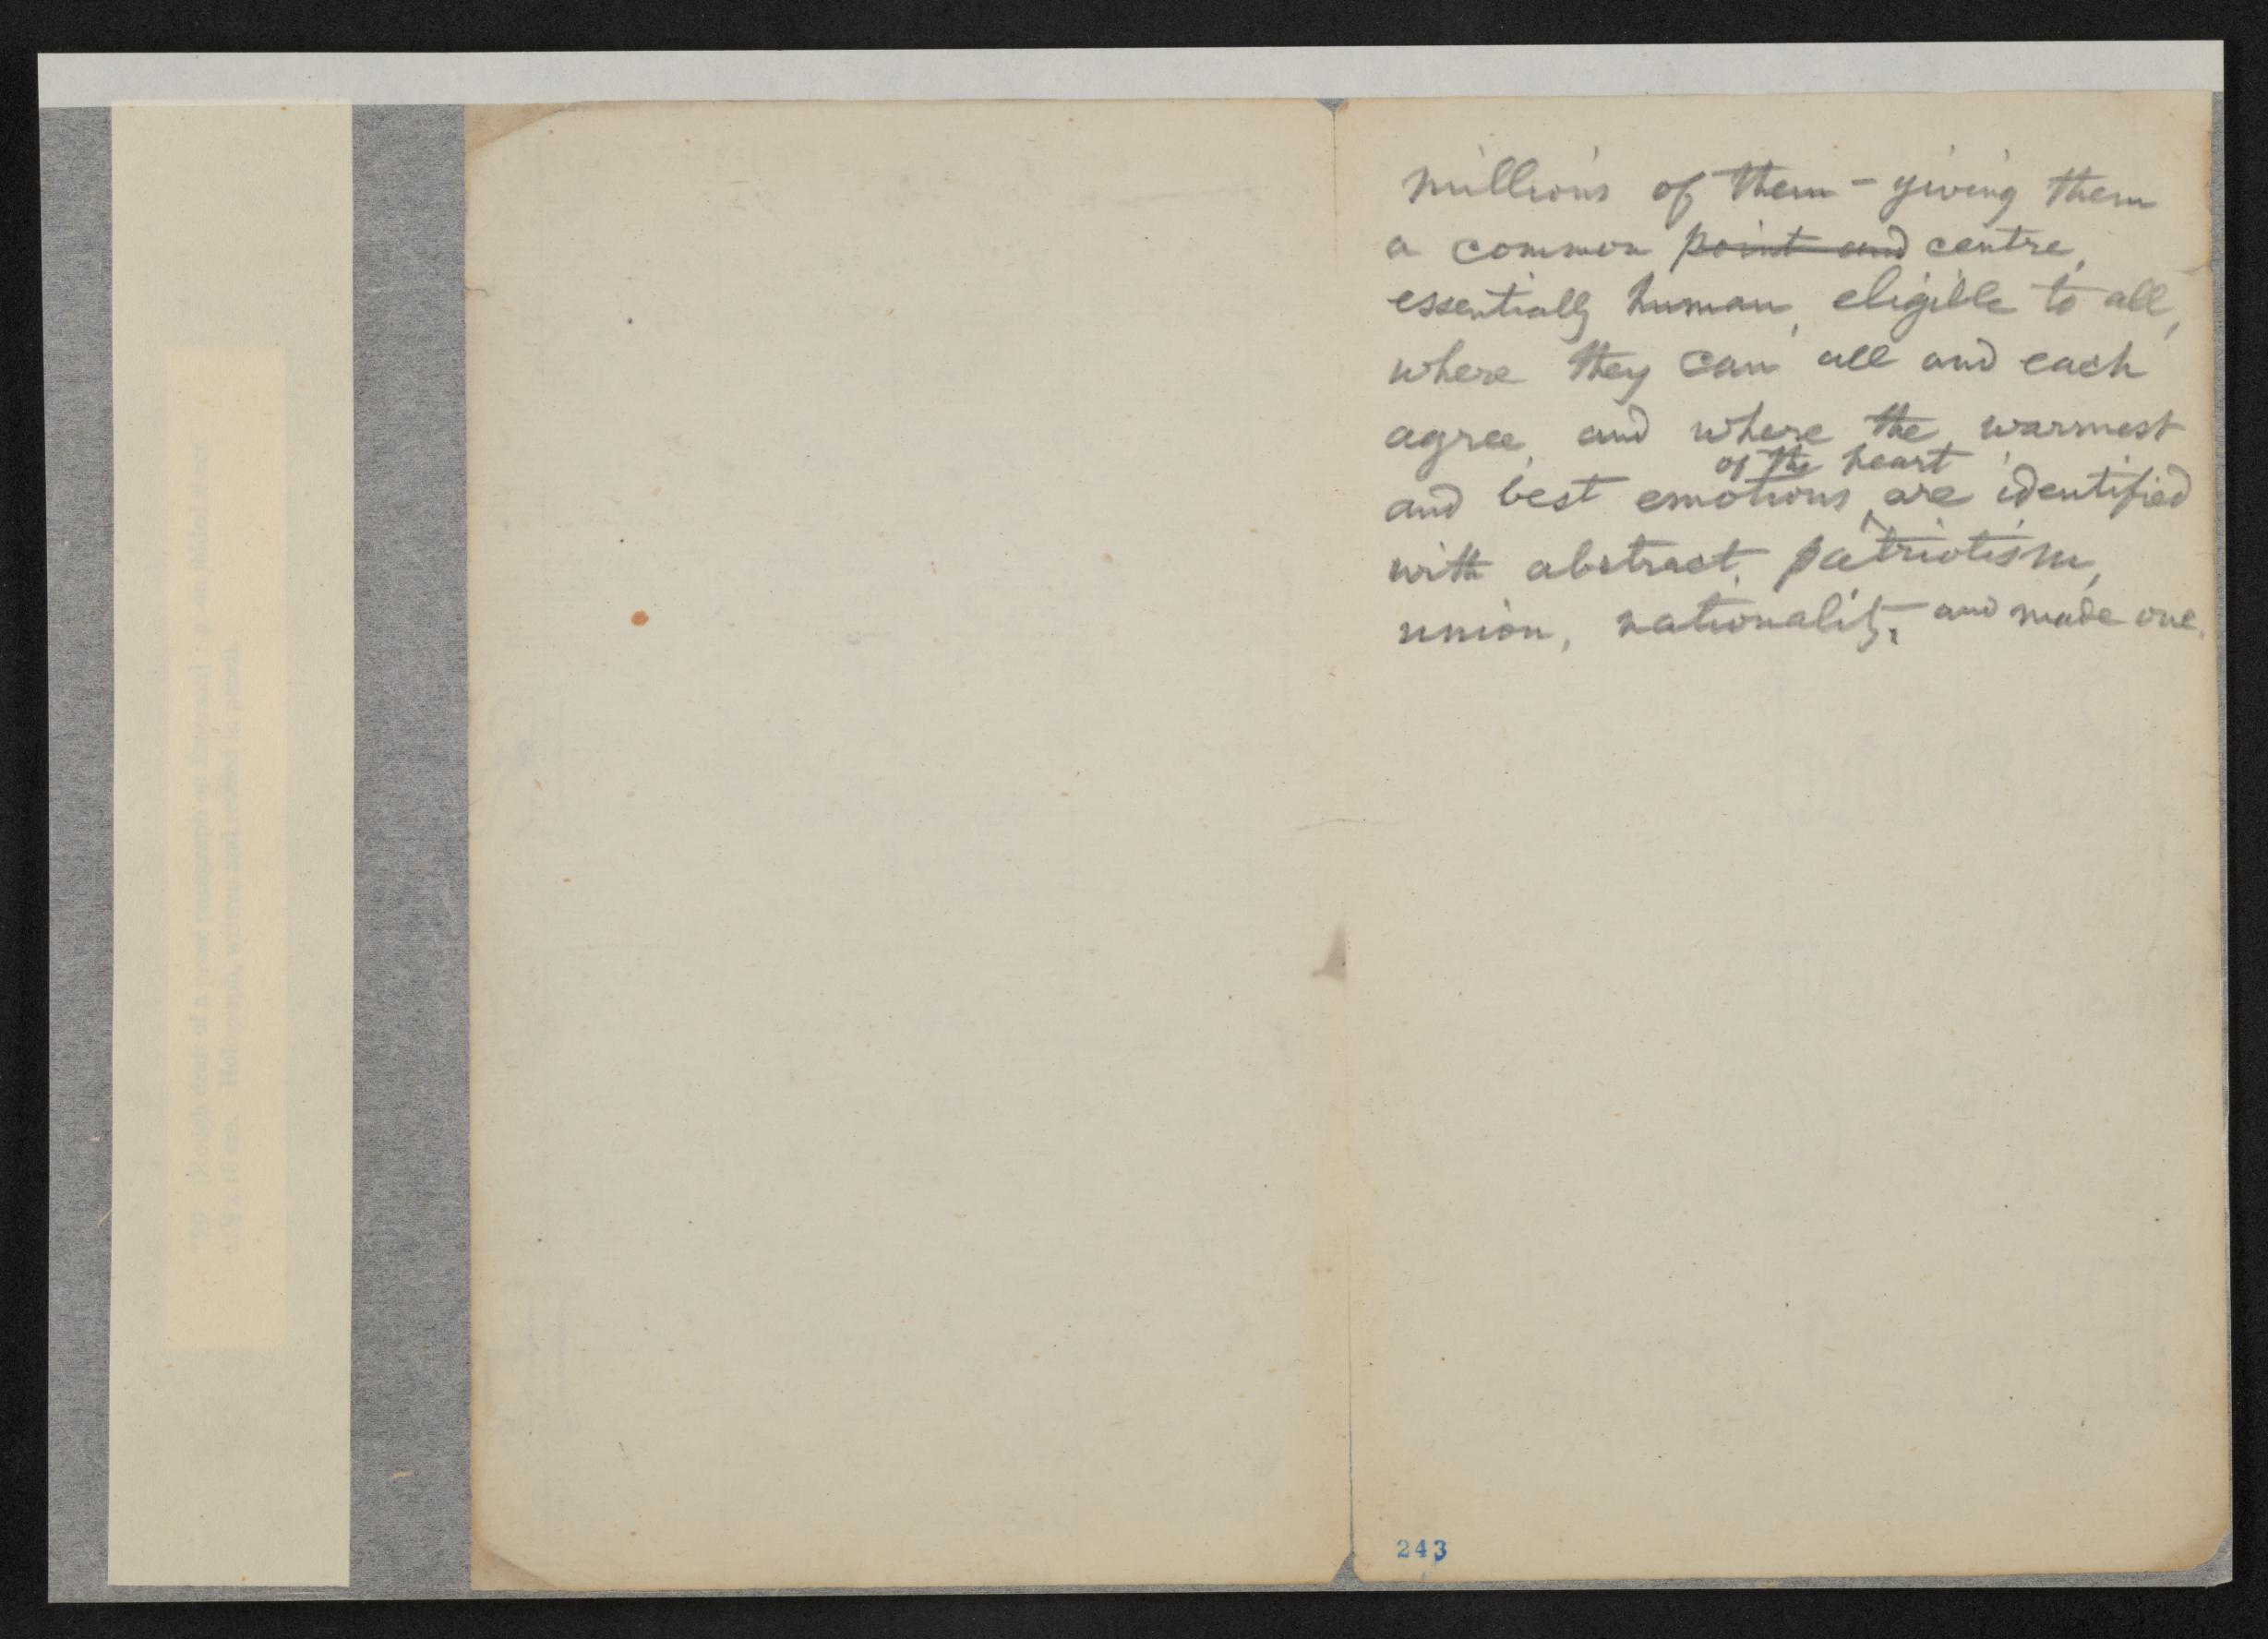 millions of them - giving them
a common point and centre,
essentially human, eligible to all,
where they can all and each
agree, and where the warmest
of the heart
and best emotions ^ are identified
with abstract patriotism,
union, nationality, and made one.
243